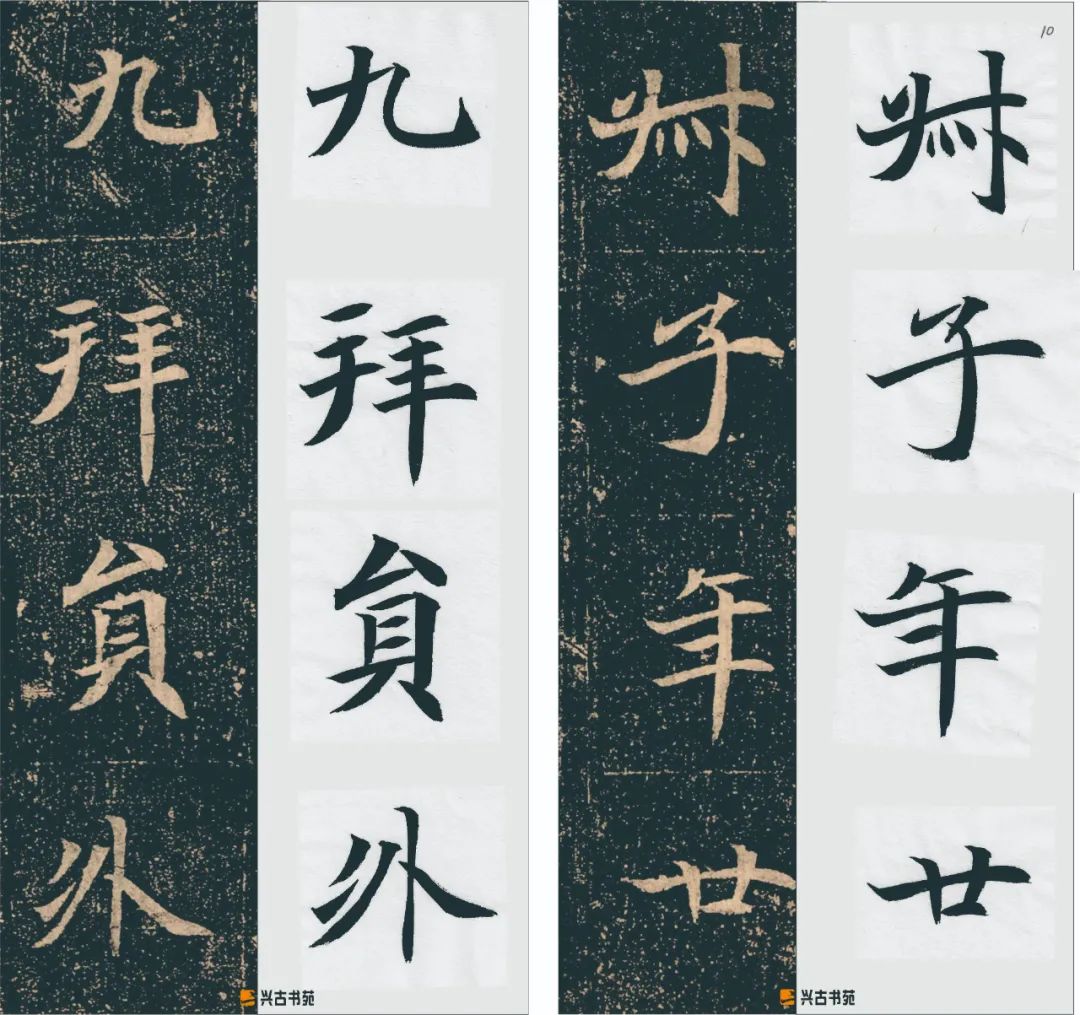 10
子年廿
子年廿
九拜貟外
九拜貟外
兴古书苑
兴古书苑